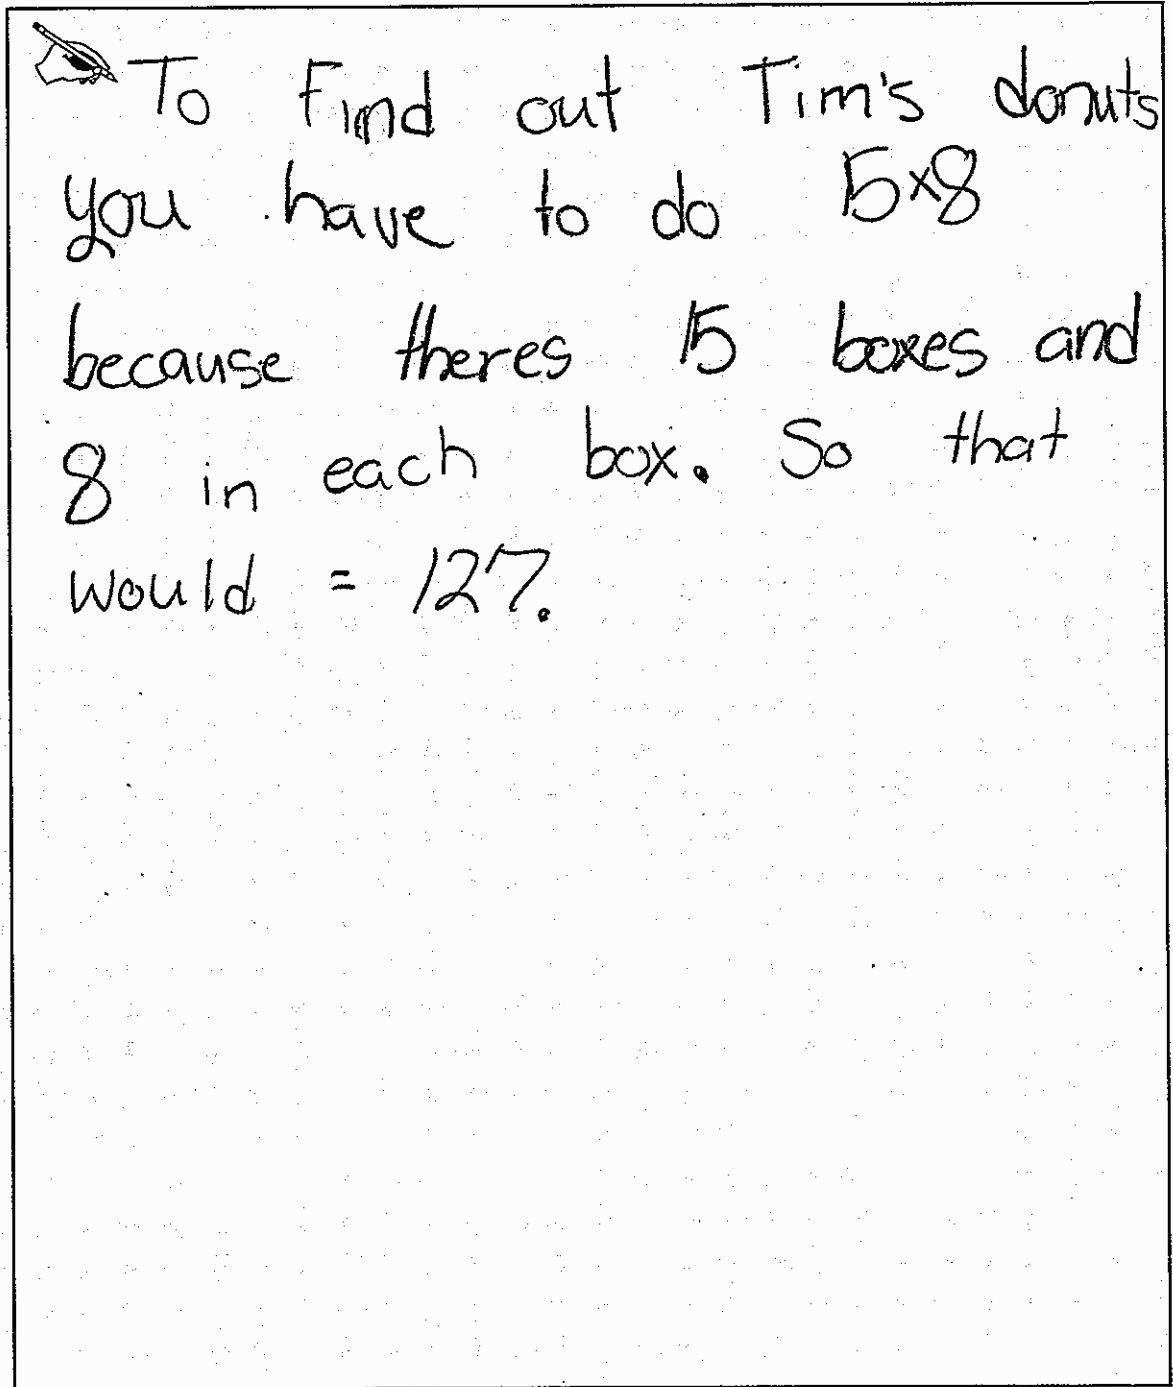 To Find out Tim's donuts
you have to do 15x8
because theres 15 boxes and
8 in each box. So that
would = 127.